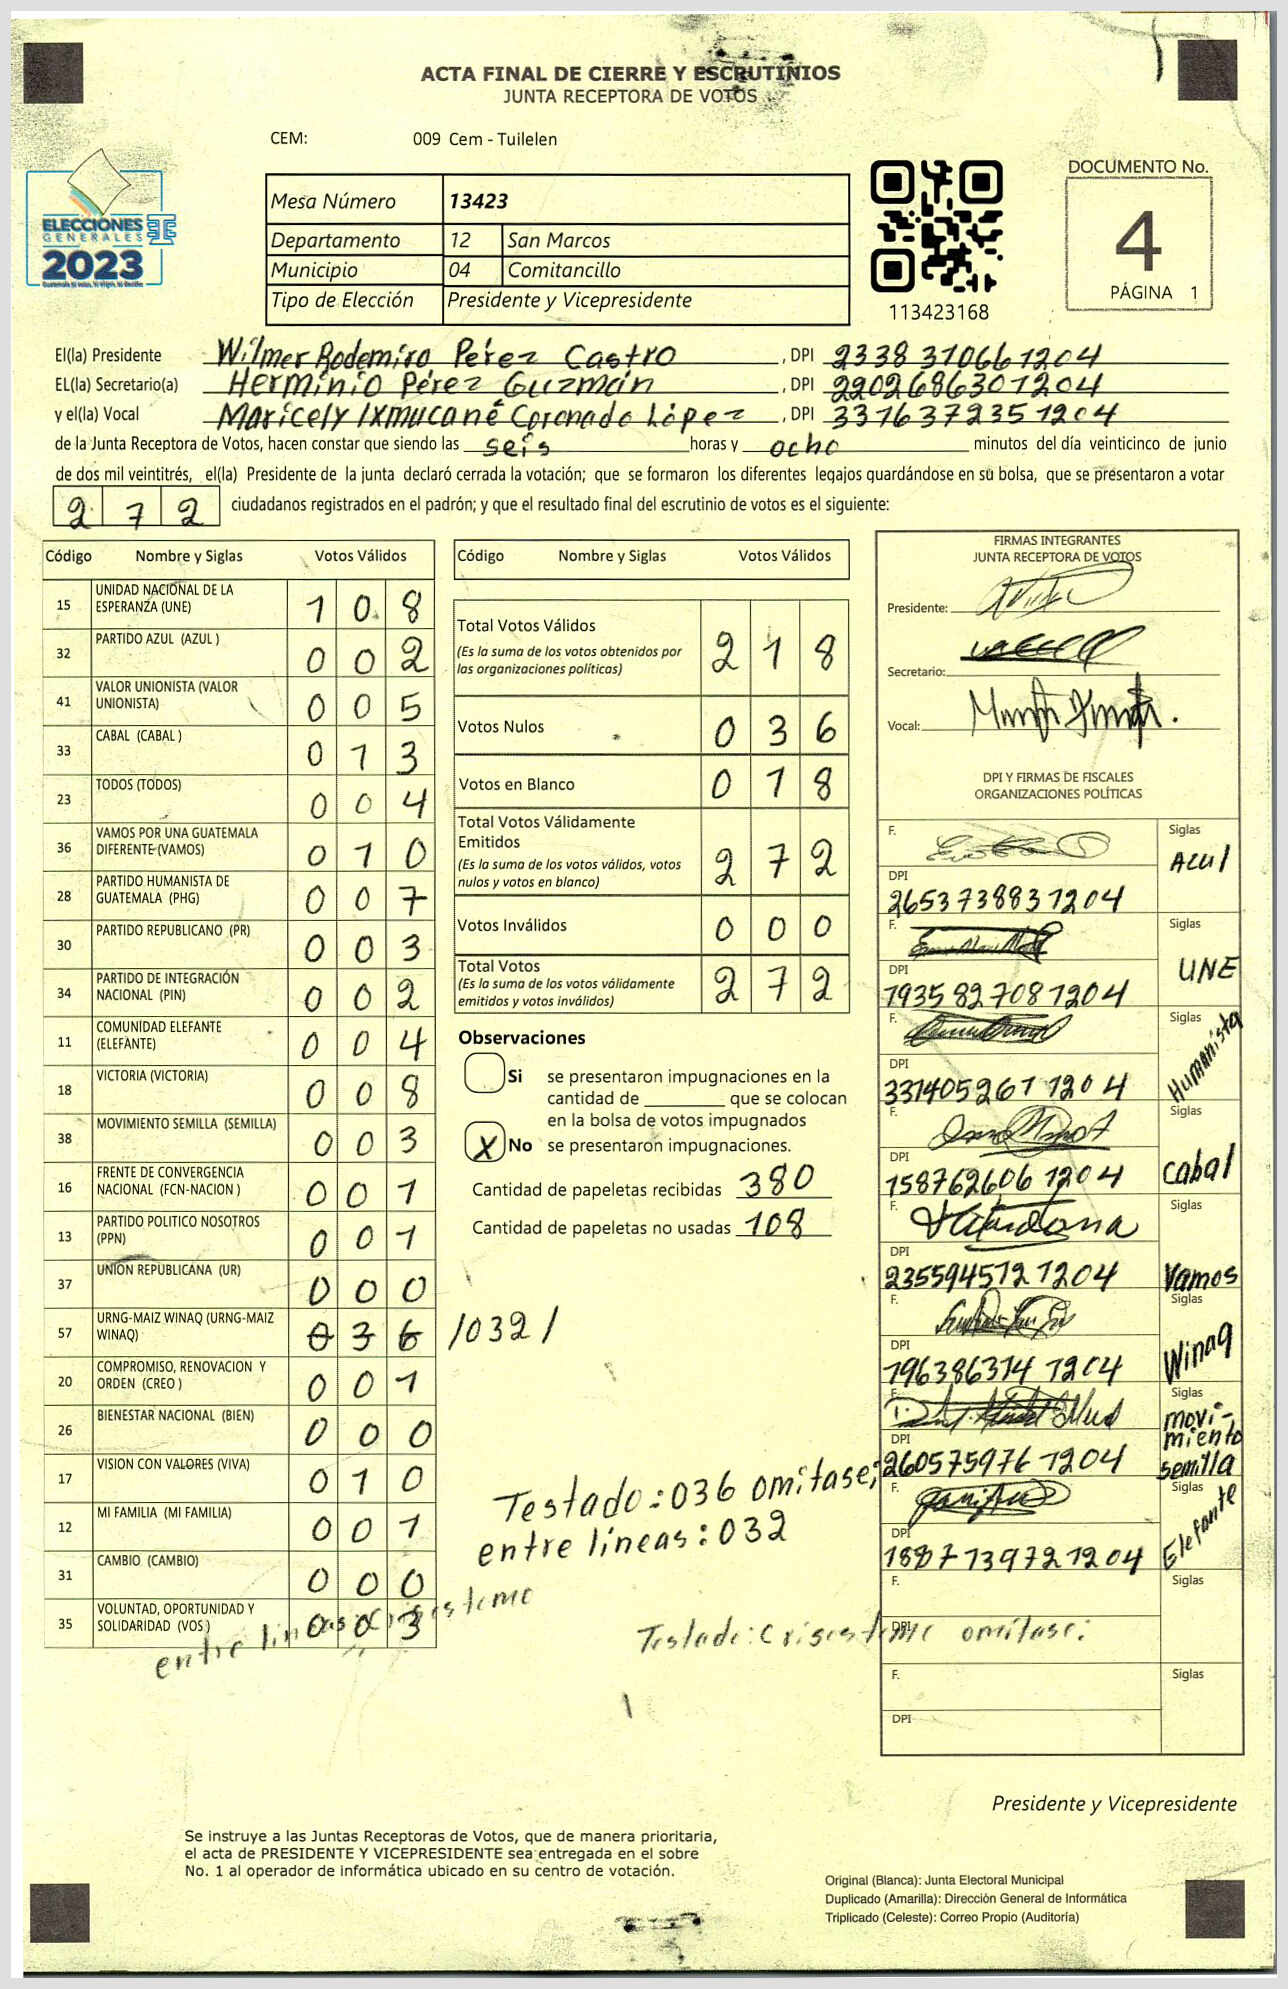 ACTA FINAL DE CIERRE Y ESCRUTINIOS
JUNTA RECEPTORA DE VOTOS
CEM: 009 Cem - Tuilelen
ELECCIONES
GENERALES
2023
Mesa Número 13423
Departamento 12 San Marcos
Municipio 04 Comitancillo
Tipo de Elección Presidente y Vicepresidente
113423168
DOCUMENTO No.
4
PÁGINA 1
El(la) Presidente Wilmer Rodemiro Pérez Castro , DPI 2338 31066 1204
EL(la) Secretario(a) Herminio Pérez Guzmán , DPI 2202686301204
y el(la) Vocal Maricely Ixmucané Coronado López , DPI 3316372351204
de la Junta Receptora de Votos, hacen constar que siendo las seis horas y ocho minutos del día veinticinco de junio
de dos mil veintitrés, el(la) Presidente de la junta declaró cerrada la votación; que se formaron los diferentes legajos quardándose en su bolsa, que se presentaron a votar
272 ciudadanos registrados en el padrón; y que el resultado final del escrutinio de votos es el siguiente:
Código Nombre y Siglas Votos Válidos
15 UNIDAD NACIONAL DE LA ESPERANZA (UNE) 1 0 8
32 PARTIDO AZUL (AZUL ) 0 0 2
41 VALOR UNIONISTA (VALOR UNIONISTA) 0 0 5
33 CABAL (CABAL ) 0 1 3
23 TODOS (TODOS) 0 0 4
36 VAMOS POR UNA GUATEMALA DIFERENTE (VAMOS) 0 1 0
28 PARTIDO HUMANISTA DE GUATEMALA (PHG) 0 0 7
30 PARTIDO REPUBLICANO (PR) 0 0 3
34 PARTIDO DE INTEGRACIÓN NACIONAL (PIN) 0 0 2
11 COMUNIDAD ELEFANTE (ELEFANTE) 0 0 4
18 VICTORIA (VICTORIA) 0 0 8
38 MOVIMIENTO SEMILLA (SEMILLA) 0 0 3
16 FRENTE DE CONVERGENCIA NACIONAL (FCN-NACION ) 0 0 1
13 PARTIDO POLITICO NOSOTROS (PPN) 0 0 1
37 UNION REPUBLICANA (UR) 0 0 0
57 URNG-MAIZ WINAQ (URNG-MAIZ WINAQ) 0 3 6 /032/
20 COMPROMISO, RENOVACION Y ORDEN (CREO ) 0 0 1
26 BIENESTAR NACIONAL (BIEN) 0 0 0
17 VISION CON VALORES (VIVA) 0 1 0
12 MI FAMILIA (MI FAMILIA) 0 0 1
31 CAMBIO (CAMBIO) 0 0 0
35 VOLUNTAD, OPORTUNIDAD Y SOLIDARIDAD (VOS ) 0 0 3
entre lineas: Crisisteme
Código Nombre y Siglas Votos Válidos
Total Votos Válidos 2 1 8
(Es la suma de los votos obtenidos por
las organizaciones políticas)
Votos Nulos 0 3 6
Votos en Blanco 0 1 8
Total Votos Válidamente
Emitidos 2 7 2
(Es la suma de los votos válidos, votos
nulos y votos en blanco)
Votos Inválidos 0 0 0
Total Votos 2 7 2
(Es la suma de los votos válidamente
emitidos y votos inválidos)
Observaciones
Si se presentaron impugnaciones en la
cantidad de ________ que se colocan
en la bolsa de votos impugnados
X No se presentaron impugnaciones.
Cantidad de papeletas recibidas 380
Cantidad de papeletas no usadas 108
Testado: 036 omítase;
entre líneas: 032
Testado: Crisisteme omítase;
FIRMAS INTEGRANTES
JUNTA RECEPTORA DE VOTOS
Presidente:
Secretario:
Vocal:
DPI Y FIRMAS DE FISCALES
ORGANIZACIONES POLÍTICAS
F. Siglas Azul
DPI 2653738831204
F. Siglas UNE
DPI 1935827081204
F. Siglas Humanista
DPI 3314052611204
F. Siglas cabal
DPI 1587626061204
F. Siglas Vamos
DPI 2355945121204
F. Siglas Winaq
DPI 1963863141204
F. Siglas movi-
miento
semilla
DPI 2605759761204
F. Siglas Elefante
DPI 1887739721204
F. Siglas
DPI
F. Siglas
DPI
Presidente y Vicepresidente
Se instruye a las Juntas Receptoras de Votos, que de manera prioritaria,
el acta de PRESIDENTE Y VICEPRESIDENTE sea entregada en el sobre
No. 1 al operador de informática ubicado en su centro de votación.
Original (Blanca): Junta Electoral Municipal
Duplicado (Amarilla): Dirección General de Informática
Triplicado (Celeste): Correo Propio (Auditoría)